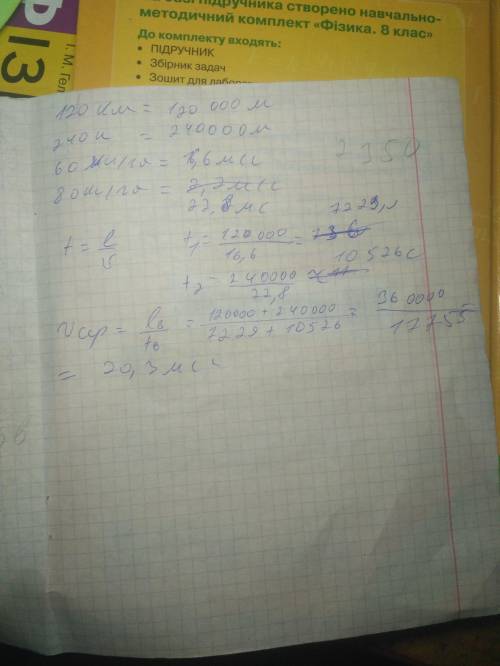 базі підручника створено навчально-
методичний комплект «Фізика. 8 клас»
До комплекту входять:
• ПІДРУЧНИК
• Збірник задач
• Зошит для лабора
ФІЗ
І. М. Гел
120 км = 120 000 м
240к = 240000м
= 1,6 мс
2350
80
22,8 мс
7229
t = l
t1 = 120 000 / 16,6 =
10526с
t2 = 240000 / 22,8
Vср = = 120000 + 240000 / 7229 + 10526 = 360000 / 17755 =
= 20,3 мс